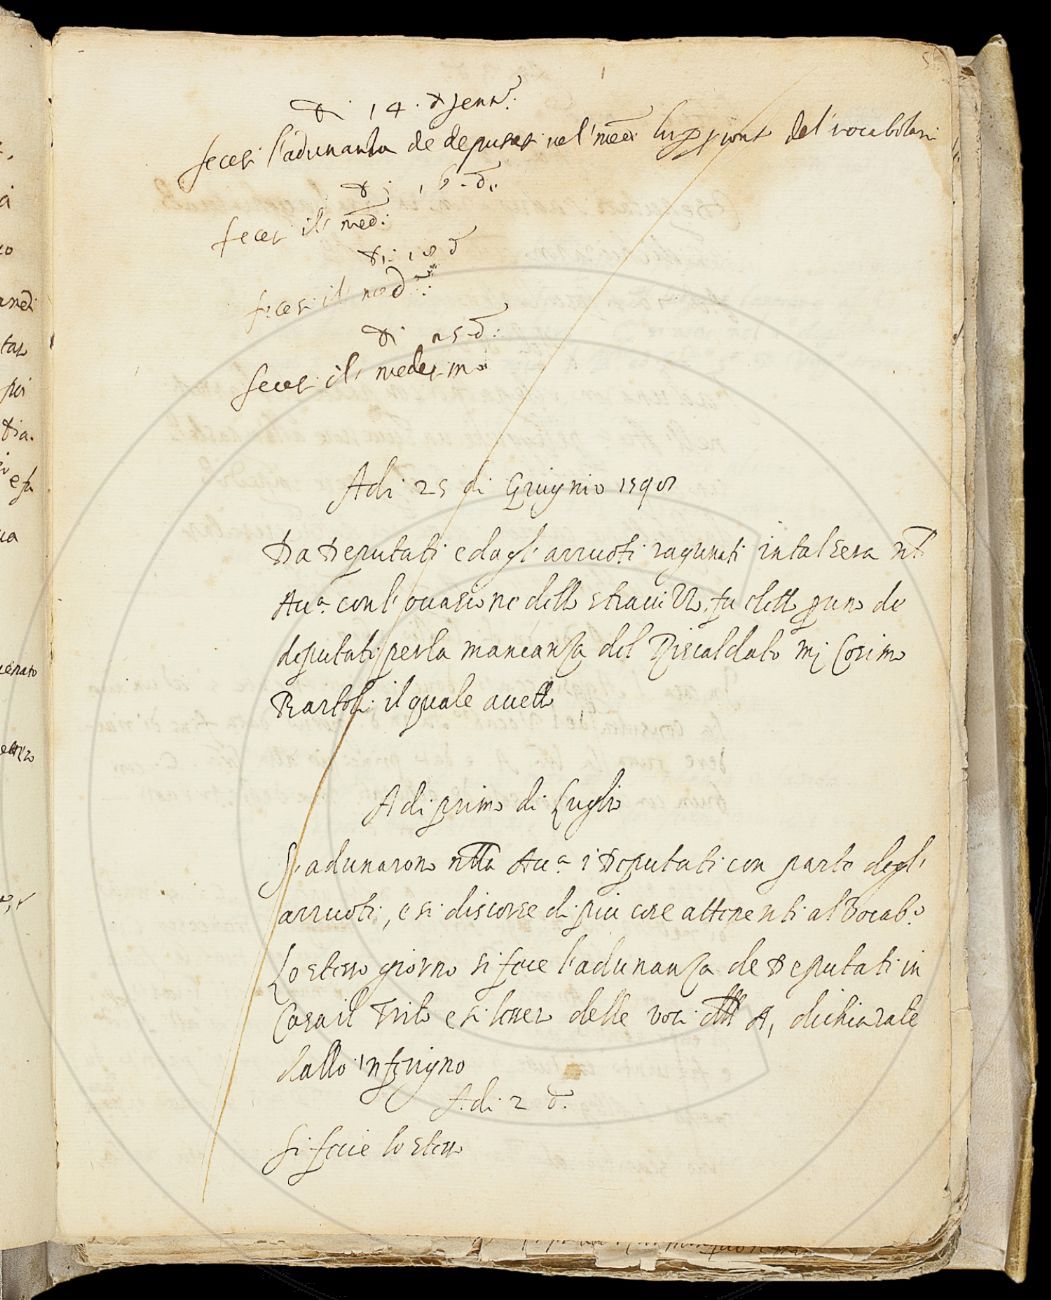 Di 14. d Jenn.:
fecesi l'adunanza de deputati nel med. del vocabolari
Di 16. d.
fecesi il med.:
Di 18 d
fecesi il med.:
Di 25 d.:
fecesi il medesimo
Adi 25 di Giugnio 1590
Da Deputati e dagl'arruoti ragunati in tal sera nll.
Au.ª con l'ouasione dello strauizzo, fu eletto p uno de
deputati per la mancanza del Riscaldato mj Cosimo
Bartoli il quale acetto
A di primo di Luglio
S'adunarono nlla Au.ª i Deputati con parte degl'
arruoti, e si discorse di piu cose attenenti al Vocab.º
Lo stesso giorno si fece l'adunanza de Deputati in
Casa il Trito e si lessero delle voci dll A, dichiarate
dallo 'nferigno
Adi 2 d.
Si fecie lo stesso